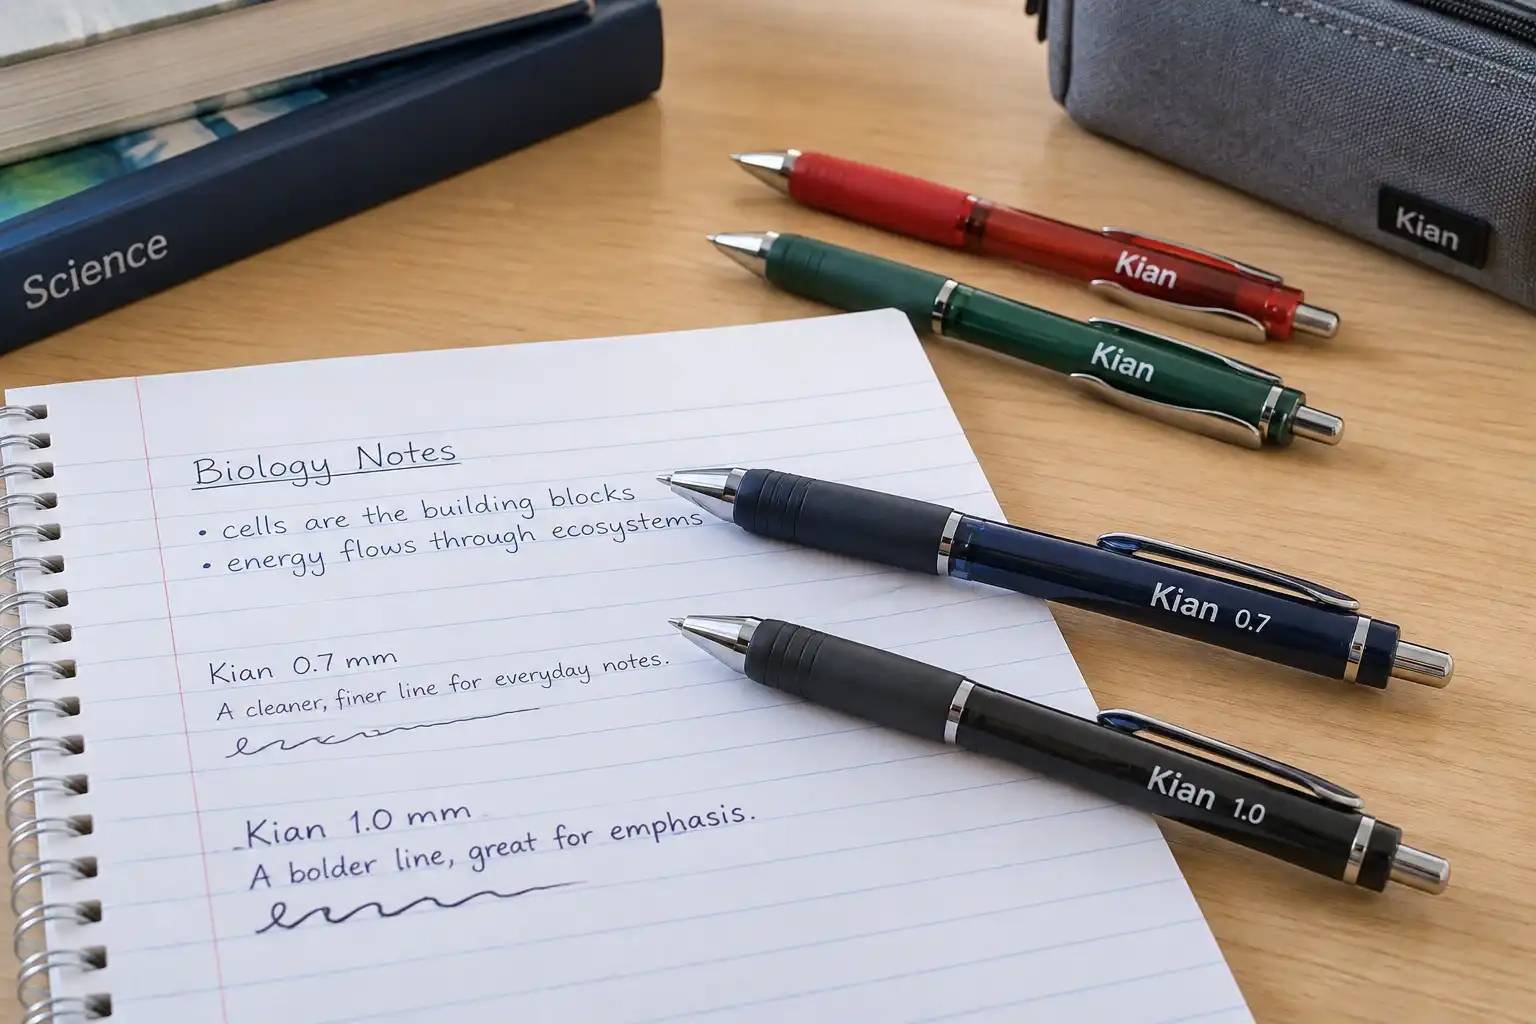 Science
Kian
Kian
Kian
Biology Notes
• cells are the building blocks
• energy flows through ecosystems
Kian 0.7
Kian 0.7 mm
A cleaner, finer line for everyday notes.
Kian 1.0
Kian 1.0 mm
A bolder line, great for emphasis.